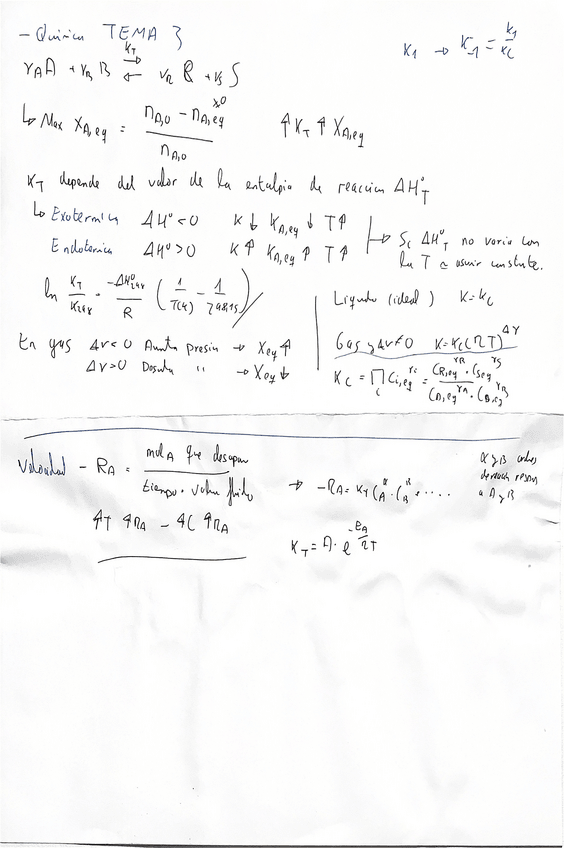 - Química TEMA 3
K1 → K-1 = k1/Kc
νA A + νB B ⇌ νR R + νS S
KT
↳ Max XA,eq = (nA,0 - nA,eq)/nA,0 ↑KT ↑XA,eq
KT depende del valor de la entalpia de reaccion ΔH°T
↳ Exotermica ΔH°<0 K↓ XA,eq ↓ T↑
Endotermica ΔH°>0 K↑ XA,eq ↑ T↑
↳ Si ΔH°T no varia con
la T ≈ asumir constante.
ln KT/K298 = -ΔH°298/R (1/T(K) - 1/298,15)
Liquido (ideal) K=Kc
En gas Δν<0 Aumenta presion → Xeq ↑
Δν>0 " → Xeq ↓
Gas y Δν≠0 K=Kc(RT)^Δν
Kc = ∏i Ci,eq^νi = (CR,eq^νR · CS,eq^νS)/(CA,eq^νA · CB,eq^νB)
Velocidad - RA = mol A que desapar/tiempo · volum fluido
→ -RA = KT CA^α · CB^β · ....
α y β ordenes
respecto
a A y B
↑T ↑RA - ↑C ↑RA
KT = A · e^(-EA/RT)